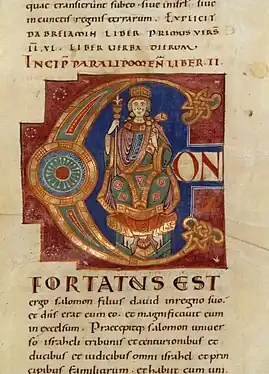 quae transierunt subeo. siue inisrl. siue
in cunctis regnis terrarum. EXPLICIT
DABREIAMIN LIBER PRIMUS
LIBER VERBA DIERUM
INCIP PARALIPOMENON LIBER II
CON
FORTATUS EST
ergo salomon filius david inregno suo.
et dns erat cum eo. et magnificavit eum
in excelsum. Praecepitq; salomon univer
so israheli tribunis et centurionibus et
ducibus et iudicibus omni israhel et prin
cipibus familiarum. et habiit cum uni